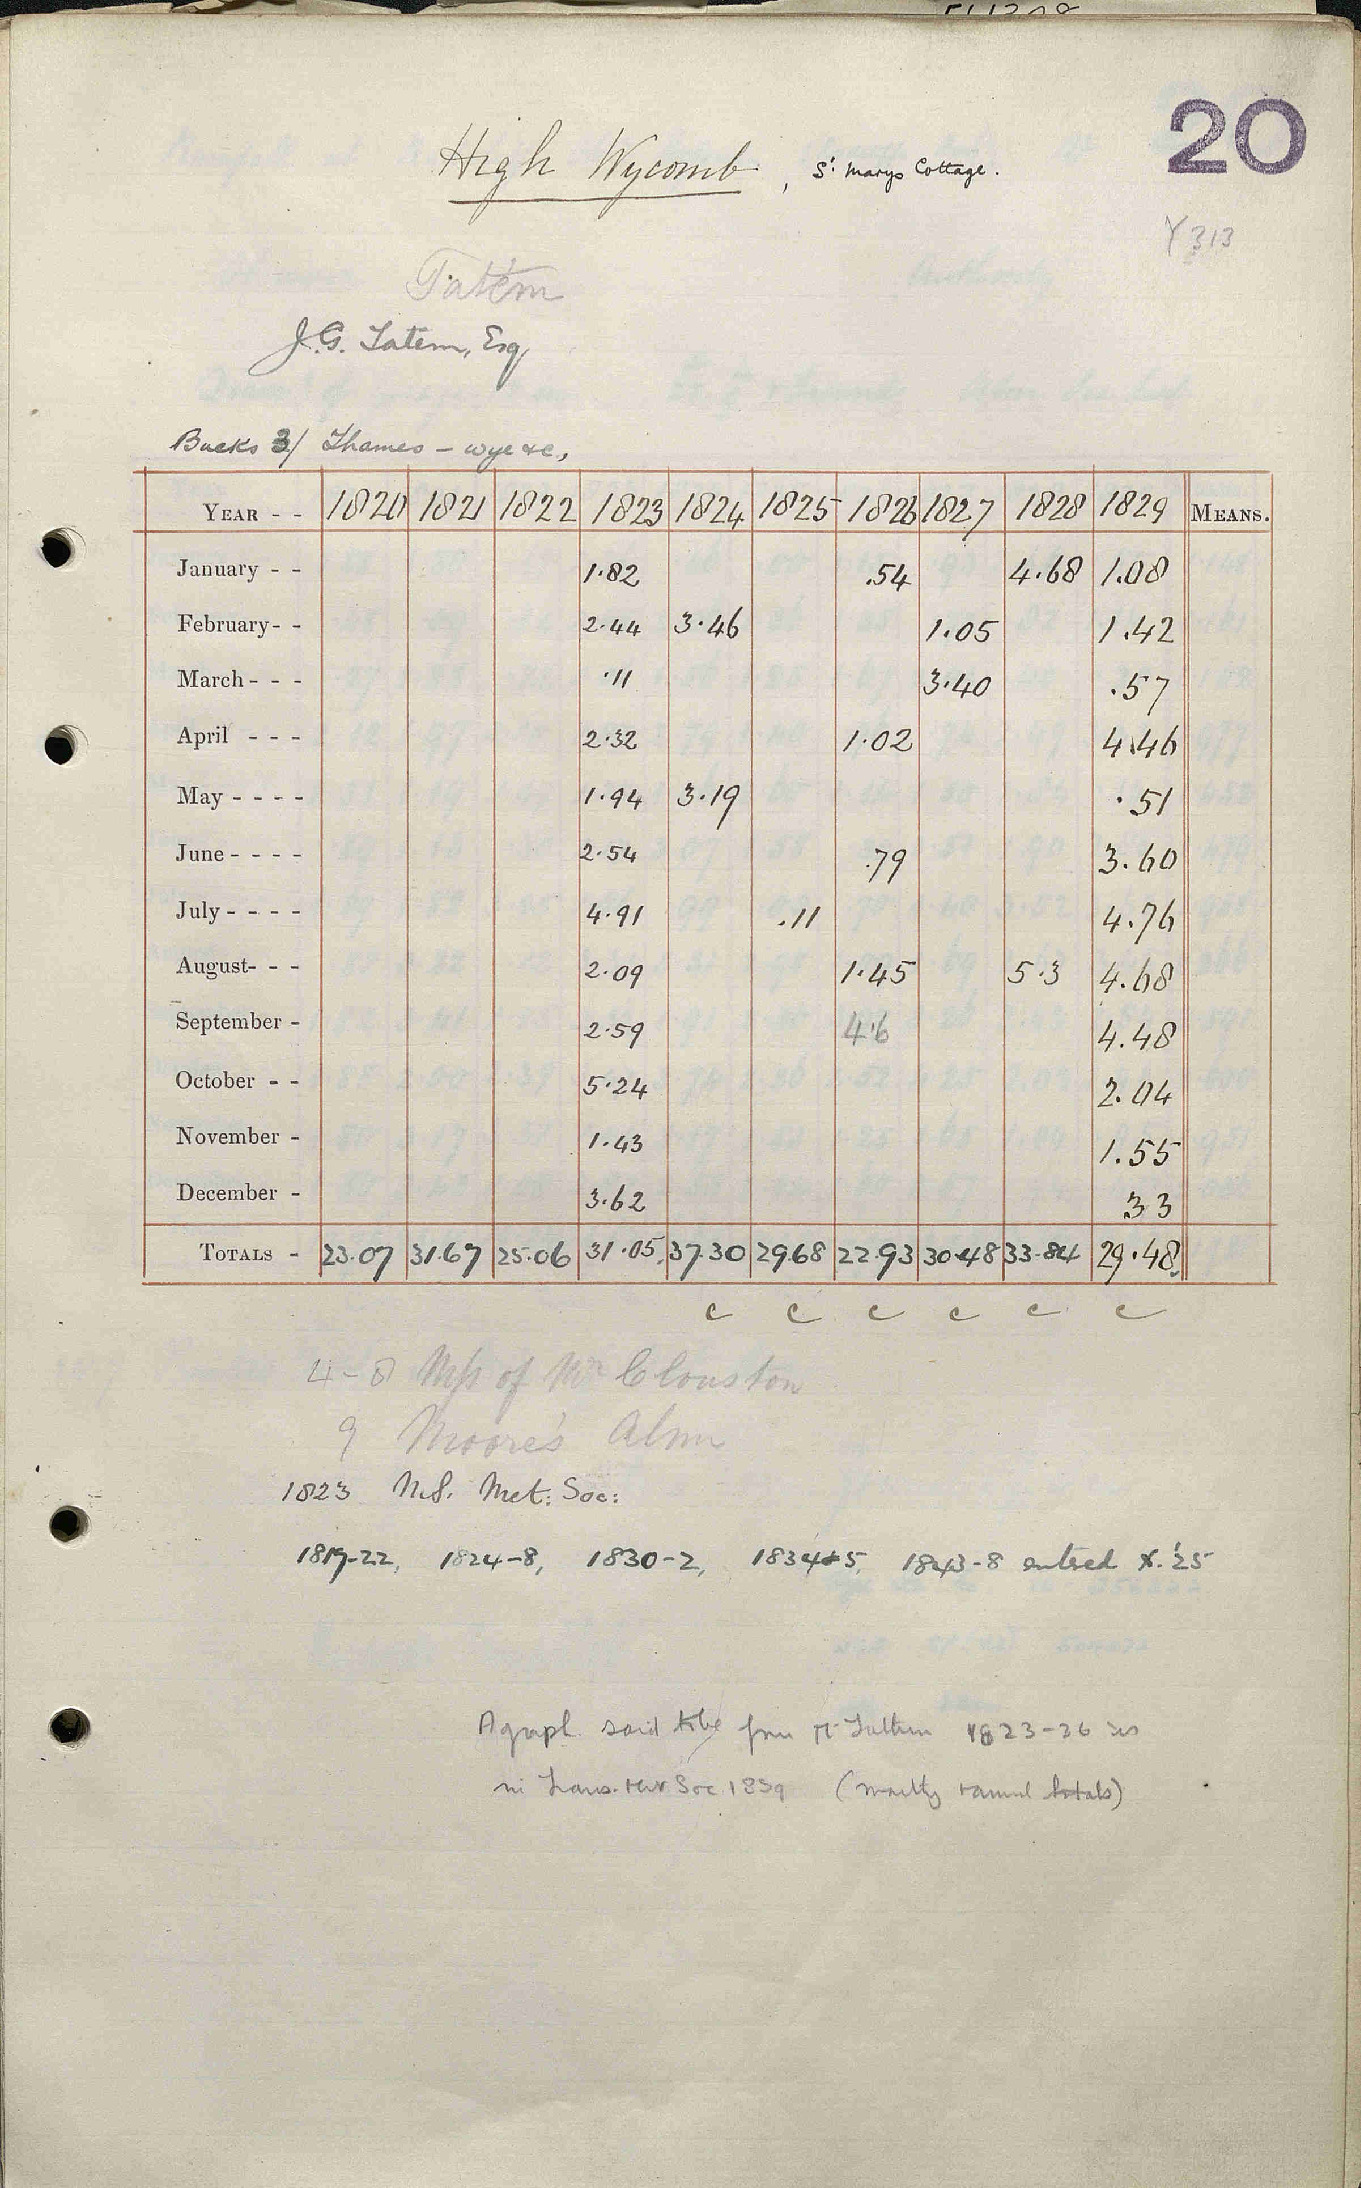 20
High Wycomb, St Marys Cottage.
Y 313
Tatem
J.G. Tatem, Esq
Bucks 3/ Thames - Wye &c,
YEAR - - 1820 1821 1822 1823 1824 1825 1826 1827 1828 1829 MEANS.
January - - 1.82 .54 4.68 1.08
February- - 2.44 3.46 1.05 1.42
March- - - .11 3.40 .57
April - - - 2.32 1.02 4.46
May - - - - 1.94 3.19 .51
June - - - - 2.54 .79 3.60
July - - - - 4.91 .11 4.76
August- - - 2.09 1.45 5.3 4.68
September - 2.59 4.6 4.48
October - - 5.24 2.04
November - 1.43 1.55
December - 3.62 .33
TOTALS - 23.07 31.67 25.06 31.05 37.30 29.68 22.93 30.48 33.84 29.48
c c c c c c
4-8 Mss of Mr Clouston
9 Moore's Alm
1823 M.S. Met: Soc:
1819-22, 1824-8, 1830-2, 1834+5, 1843-8 entered X.'25
A graph said to be from Mr Tattem 1823-26 is
in Trans. Met Soc 1839 (mostly annual totals)